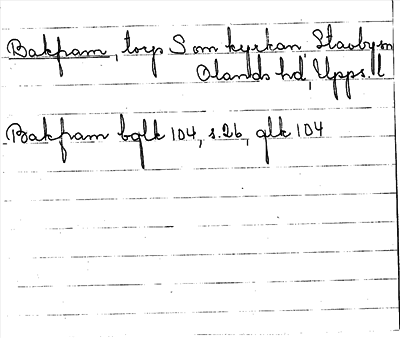 Bakfram, torp S om kyrkan Stavby sn
Olands hd, Upps. l
Bakfram bglk 104, s. 26, glk 104